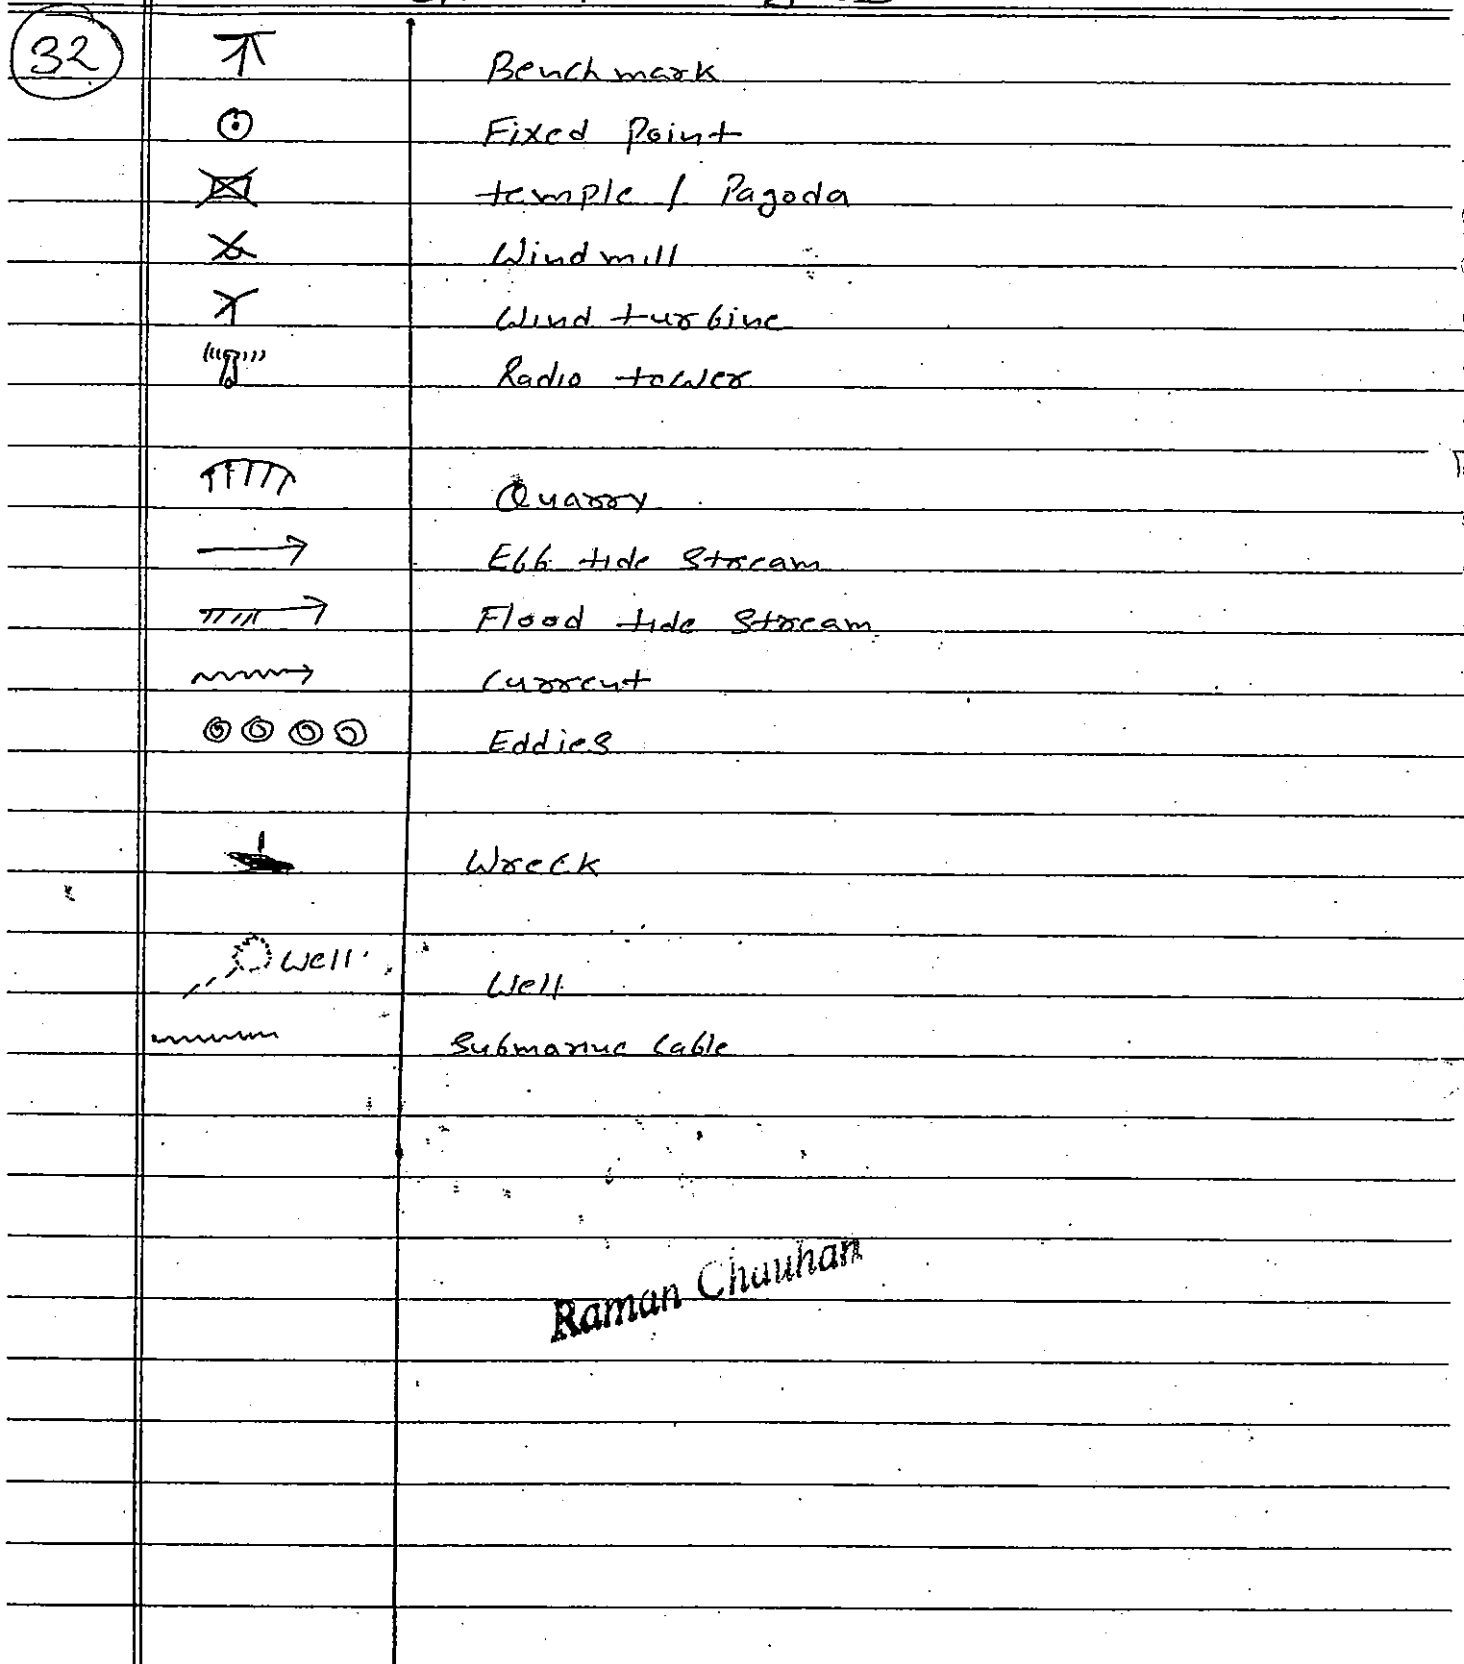 32
Benchmark
Fixed Point
temple / Pagoda
Windmill
Wind turbine
Radio tower
Quarry
Ebb tide Stream
Flood tide Stream
Current
Eddies
Wreck
Well
Well
Submarine Cable
Raman Chauhan